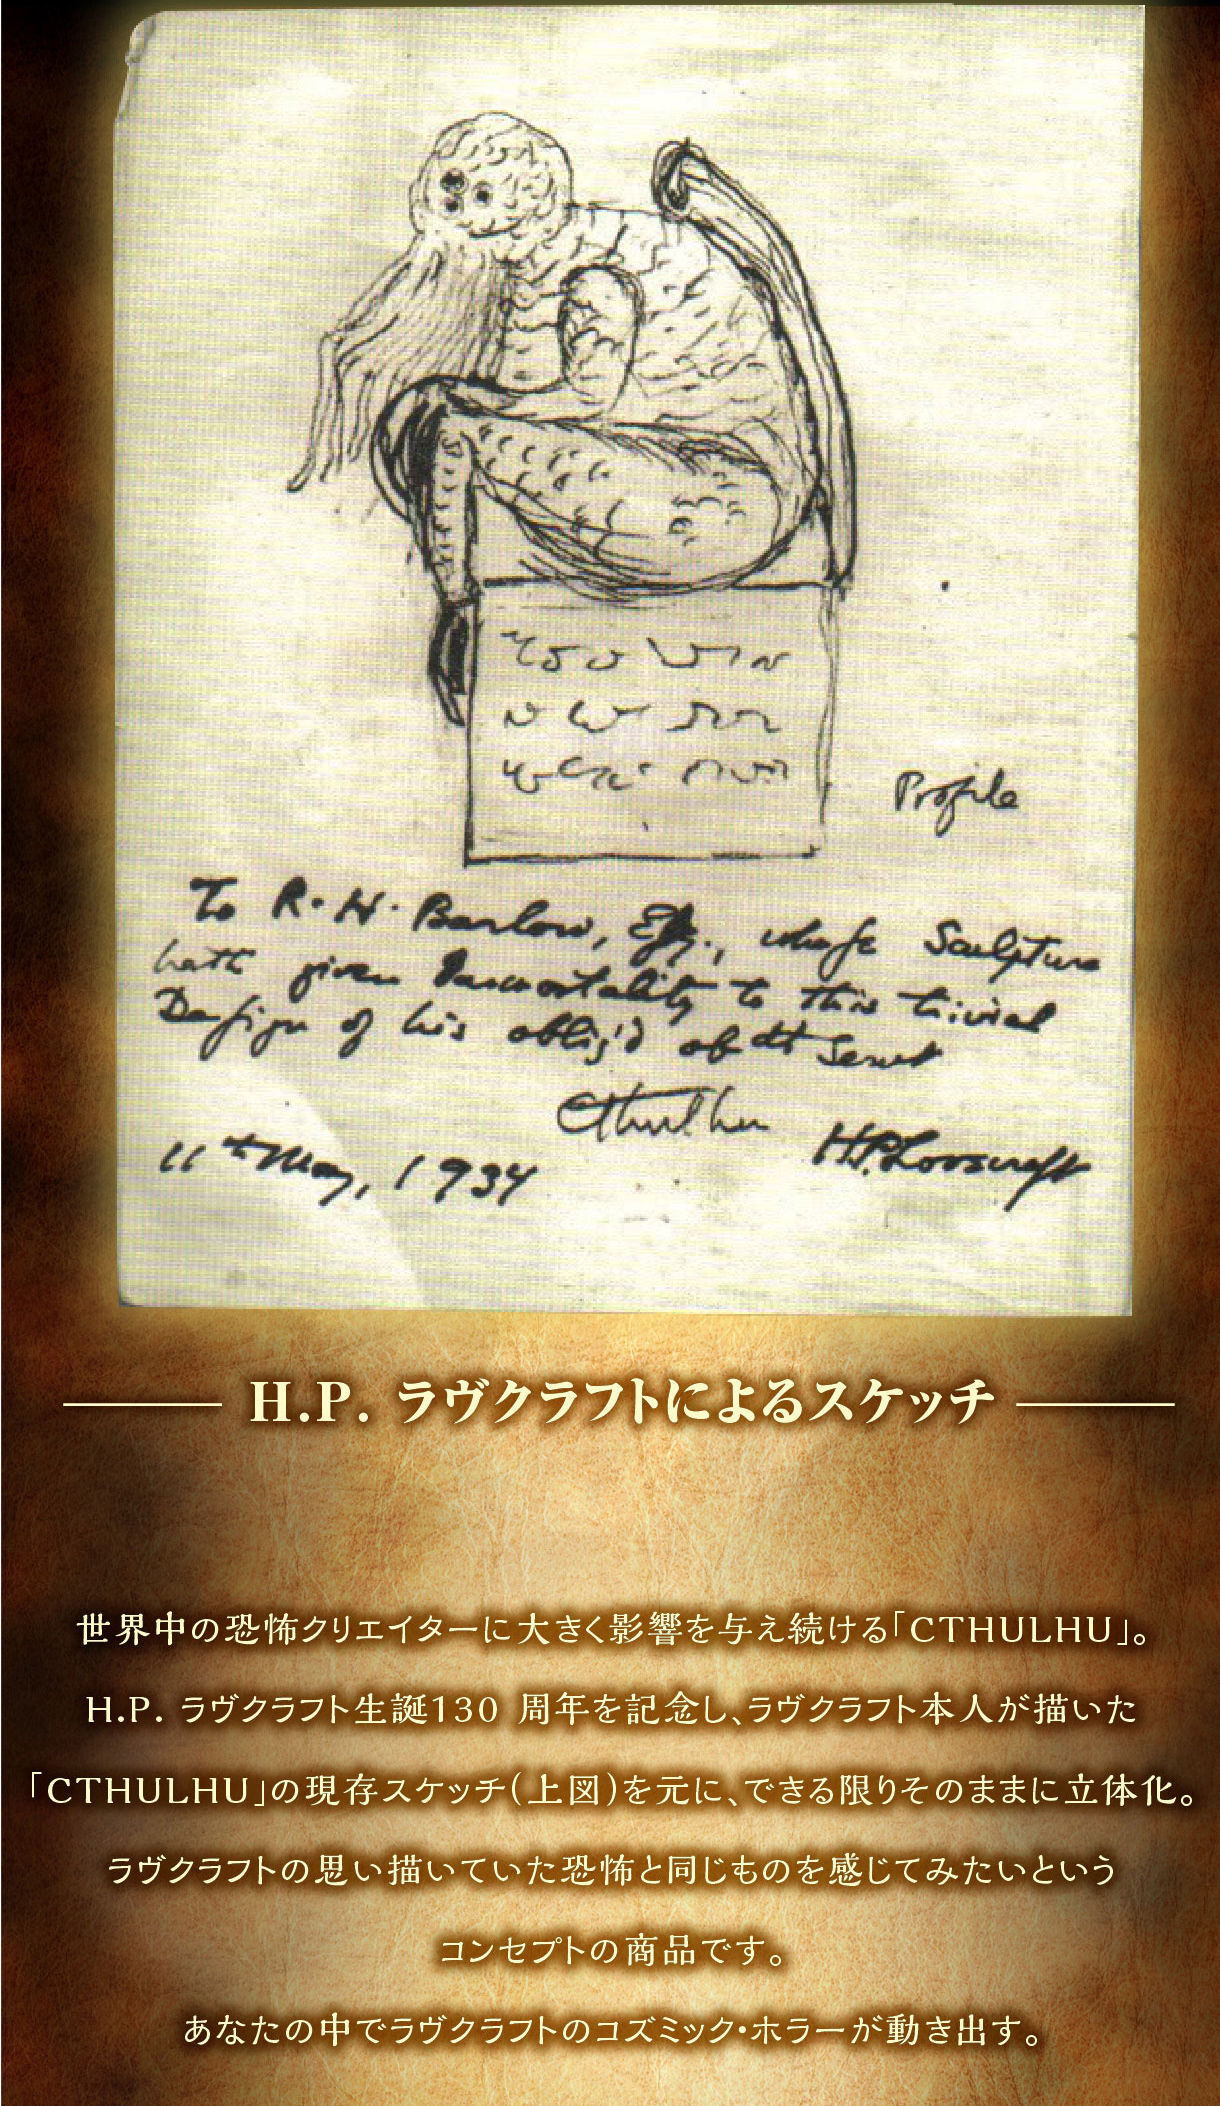 Profile
To R. H. Barlow, Esq., whose Sculpture
hath given Immortality to this trivial
Design of his oblig'd obdt Servt
Cthulhu
H.P. Lovecraft
11th May, 1934
H.P. ラヴクラフトによるスケッチ
世界中の恐怖クリエイターに大きく影響を与え続ける「CTHULHU」。
H.P. ラヴクラフト生誕130 周年を記念し、ラヴクラフト本人が描いた
「CTHULHU」の現存スケッチ(上図)を元に、できる限りそのままに立体化。
ラヴクラフトの思い描いていた恐怖と同じものを感じてみたいという
コンセプトの商品です。
あなたの中でラヴクラフトのコズミック・ホラーが動き出す。